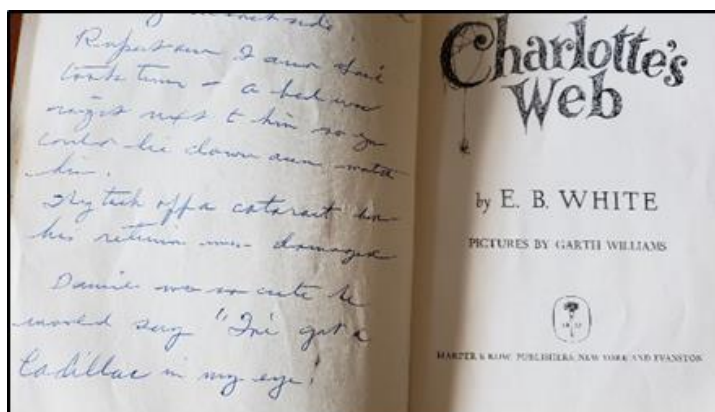 side!
I and
took turns – a bed was
right next to him so you
could lie down and watch
him.
They took off a cataract
his retina was damaged
Dannie was so cute he
would say "I've got a
Cadillac in my eye!
Charlotte's
Web
by E. B. WHITE
PICTURES BY GARTH WILLIAMS
HARPER & ROW, PUBLISHERS, NEW YORK AND EVANSTON